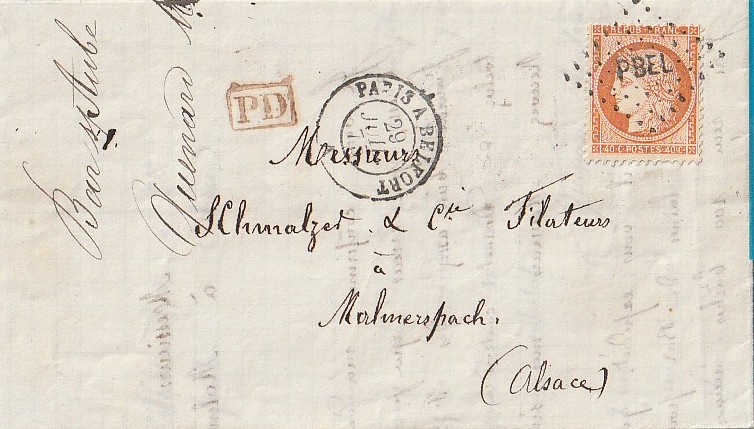 Bar s/ Aube
PD
PARIS A BELFORT
29
REPUB. FRANC.
PBEL
40 C. POSTES 40 C.
Messieurs
Schmalzer & Cie Filateurs
à
Malmerspach.
(Alsace)